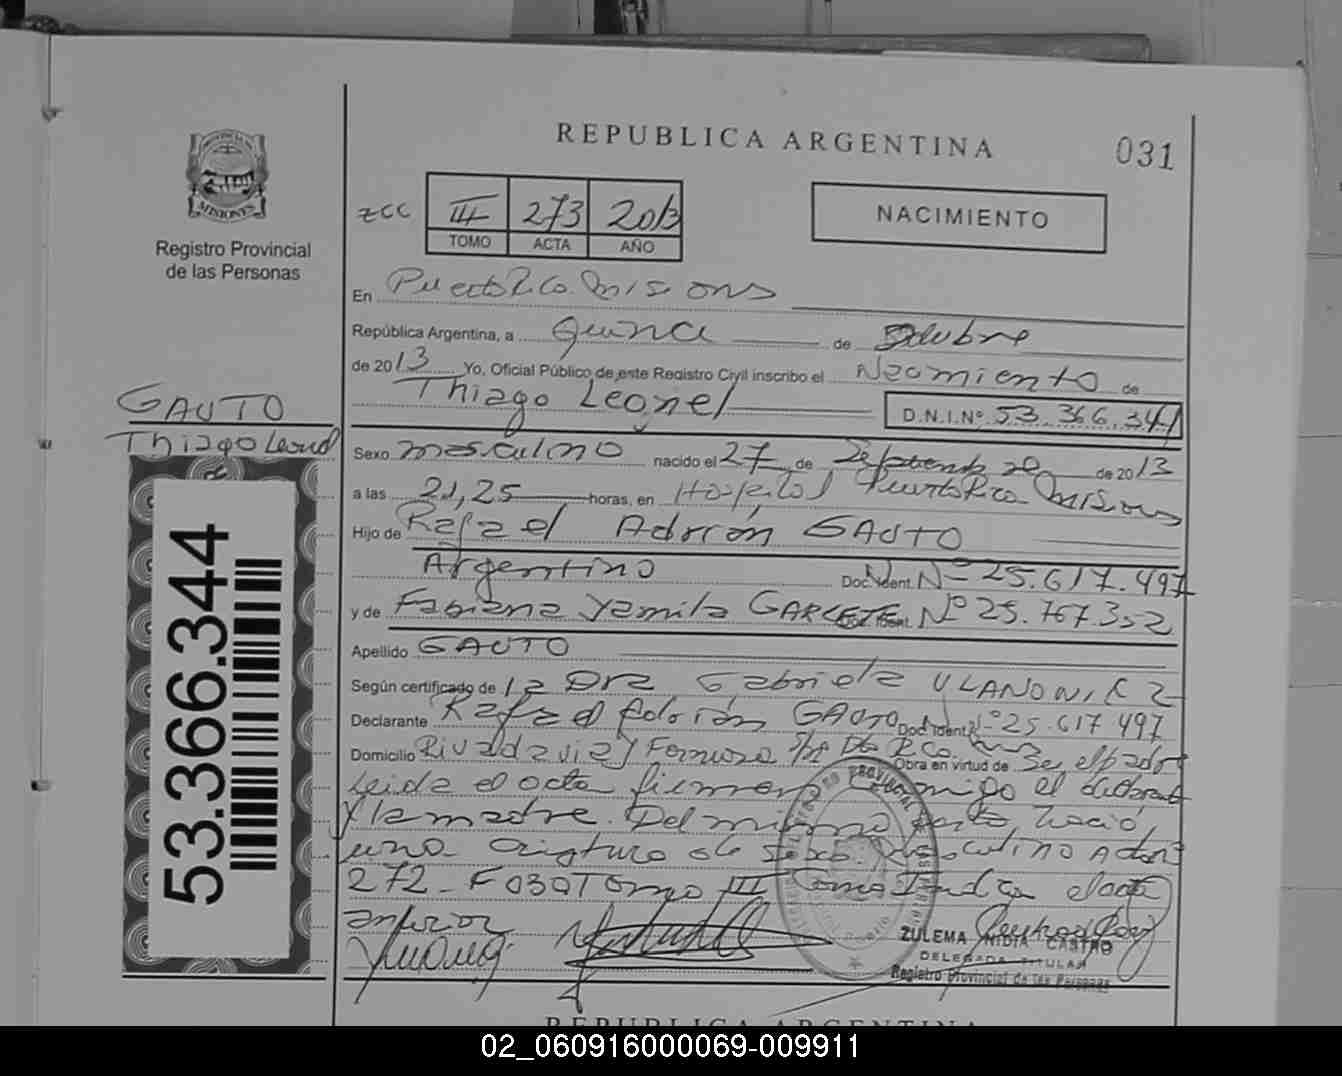 REPUBLICA ARGENTINA
031
PROVINCIA DE
MISIONES
Registro Provincial
de las Personas
ZCC
III 273 2013
TOMO ACTA AÑO
NACIMIENTO
En Puerto Rico. Misiones
República Argentina, a Quince de Octubre
de 2013 Yo, Oficial Público de este Registro Civil inscribo el Nacimiento de
Thiago Leonel
D.N.I.Nº 53.366.344
GAUTO
Thiago Leonel
Sexo masculino nacido el 27 de Septiembre de 2013
a las 21,25 horas, en Hospital Puerto Rico Misiones
Hijo de Rafael Adrián GAUTO
Argentino Doc. Ident. Nº 25.617.497
y de Fabiana Yamila GARCETE Doc. Ident. Nº 25.767.352
Apellido GAUTO
Según certificado de la Dra Gabriela
Declarante Rafael Adrián GAUTO Doc. Ident. Nº 25.617.497
Domicilio Rivadavia y Formosa Pto Rico. Obra en virtud de Ser el padre
Leida el acta firman conmigo el declarante
y la madre. Del mismo parto, nació
una criatura de sexo masculino Acta
272 - F030 Tomo III Como indica el acta
anterior
ZULEMA NIDIA CASTRO
DELEGADA TITULAR
Registro Provincial de las Personas
53.366.344
REPUBLICA ARGENTINA
02_060916000069-009911